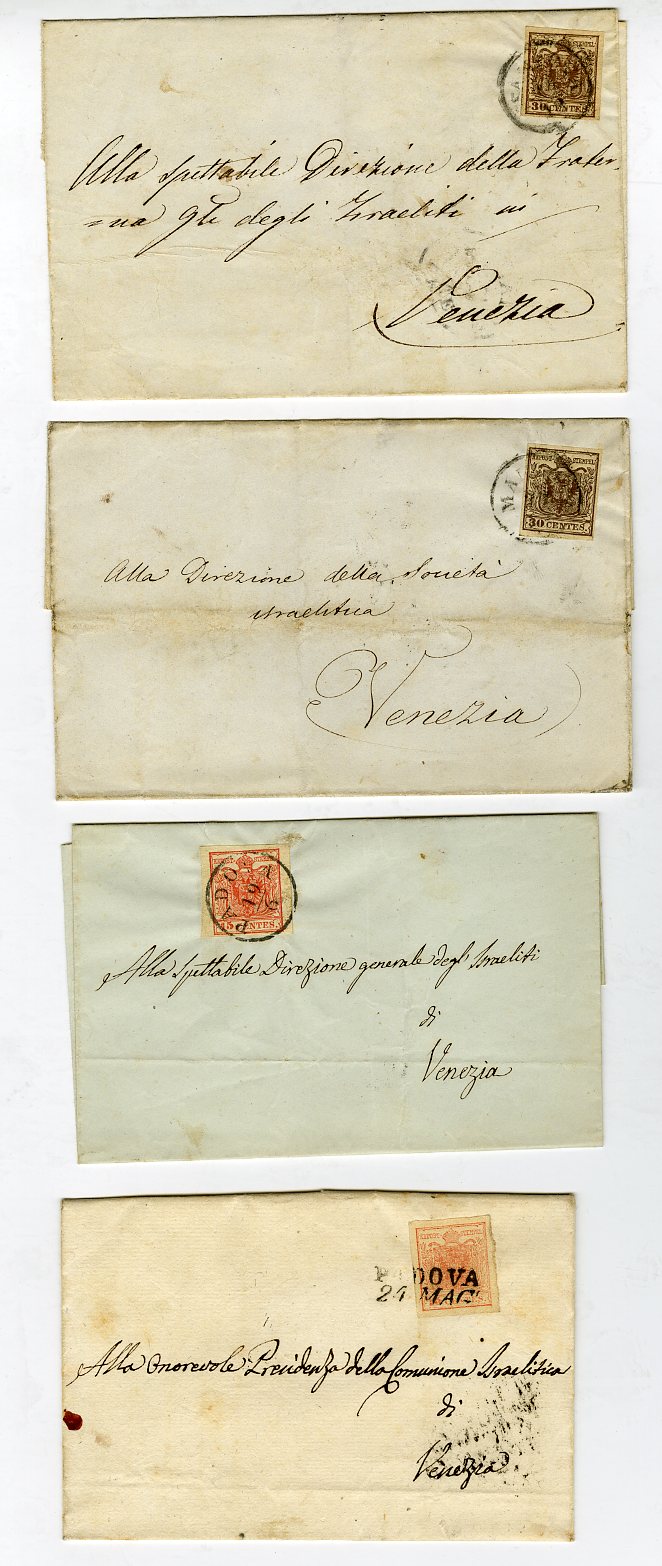 KKPOST-STEMPEL
30 CENTES.
Alla spettabile Direzione della Frater-
=na gle degli Israeliti in
Venezia
KKPOST-STEMPEL
30 CENTES.
MAN
Alla Direzione della Società
israelitica
Venezia
KKPOST-STEMPEL
15 CENTES.
PADO
19/6
Alla Spettabile Direzione generale degl' Israeliti
di
Venezia
KKPOST-STEMPEL
PADOVA
24 MAG.
Alla Onorevole Presidenza della Comunione Israelitica
di
Venezia